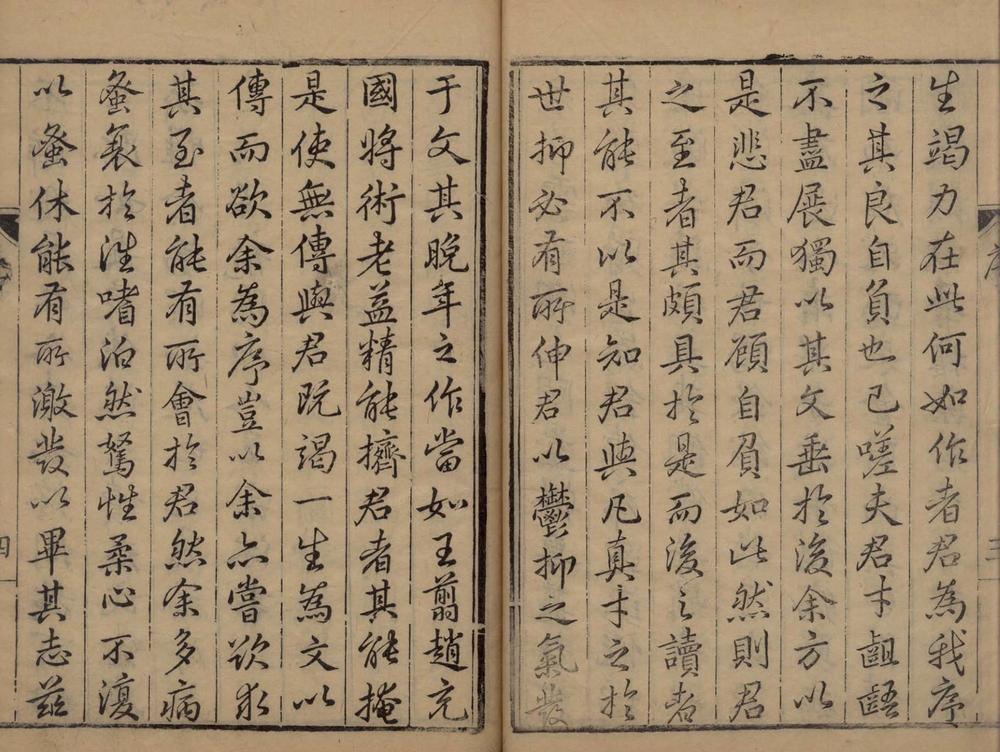 生竭力在此何如作者君為我序
之其良自負也已嗟夫君才齟齬
不盡展獨以其文垂於後余方以
是悲君而君顧自負如此然則君
之至者其頗具於是而後之讀者
其能不以是知君與凡真才之於
世抑必有所伸君以鬱抑之氣發
于文其晚年之作當如王翦趙充
國將術老益精能擠君者其能掩
是使無傳與君既竭一生為文以
傳而欲余為序豈以余亦嘗欲求
其至者能有所會於君然余多病
蚤衰於
嗜泊然駑性柔心不復
以蚤休能有所激發以畢其志茲
序
三
四